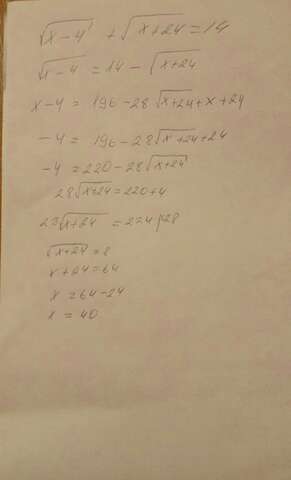 √(x-4) + √(x+24) = 14
√(x-4) = 14 - √(x+24)
x-4 = 196-28√(x+24)+x+24
-4 = 196-28√(x+24)+24
-4 = 220-28√(x+24)
28√(x+24) = 220+4
28√(x+24) = 224|:28
√(x+24) = 8
x+24=64
x = 64-24
x = 40